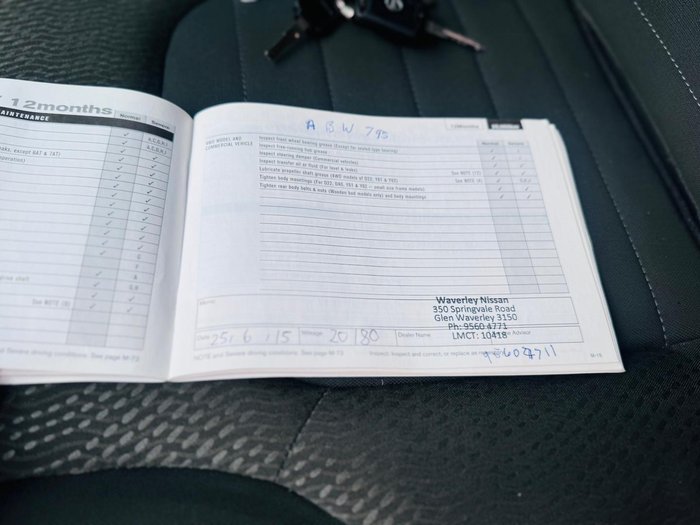 12months
MAINTENANCE
Normal
Severe
aks, except 6AT & 7AT)
operation)
drive shaft
See NOTE (8)
and Severe driving conditions. See page M-73
A B W 795
12months
4WD MODEL AND
COMMERCIAL VEHICLE
Normal Severe
Inspect front wheel bearing grease (Except for sealed-type bearing)
Inspect free-running hub grease
Inspect steering damper (Commercial vehicles)
Inspect transfer oil or fluid (For level & leaks)
Lubricate propeller shaft grease (4WD models of D22, Y61 & Y62) See NOTE (12)
Tighten body mountings (For D22, D40, Y61 & Y62 – small size frame models) See NOTE (4)
Tighten rear body bolts & nuts (Wooden bed models only) and body mountings
Memo:
Waverley Nissan
350 Springvale Road
Glen Waverley 3150
Ph: 9560 4771
LMCT: 10418
Date 25, 6, 15 Mileage 20 180 Dealer Name Advisor
NOTE and Severe driving conditions. See page M-73
Inspect: Inspect and correct, or replace as